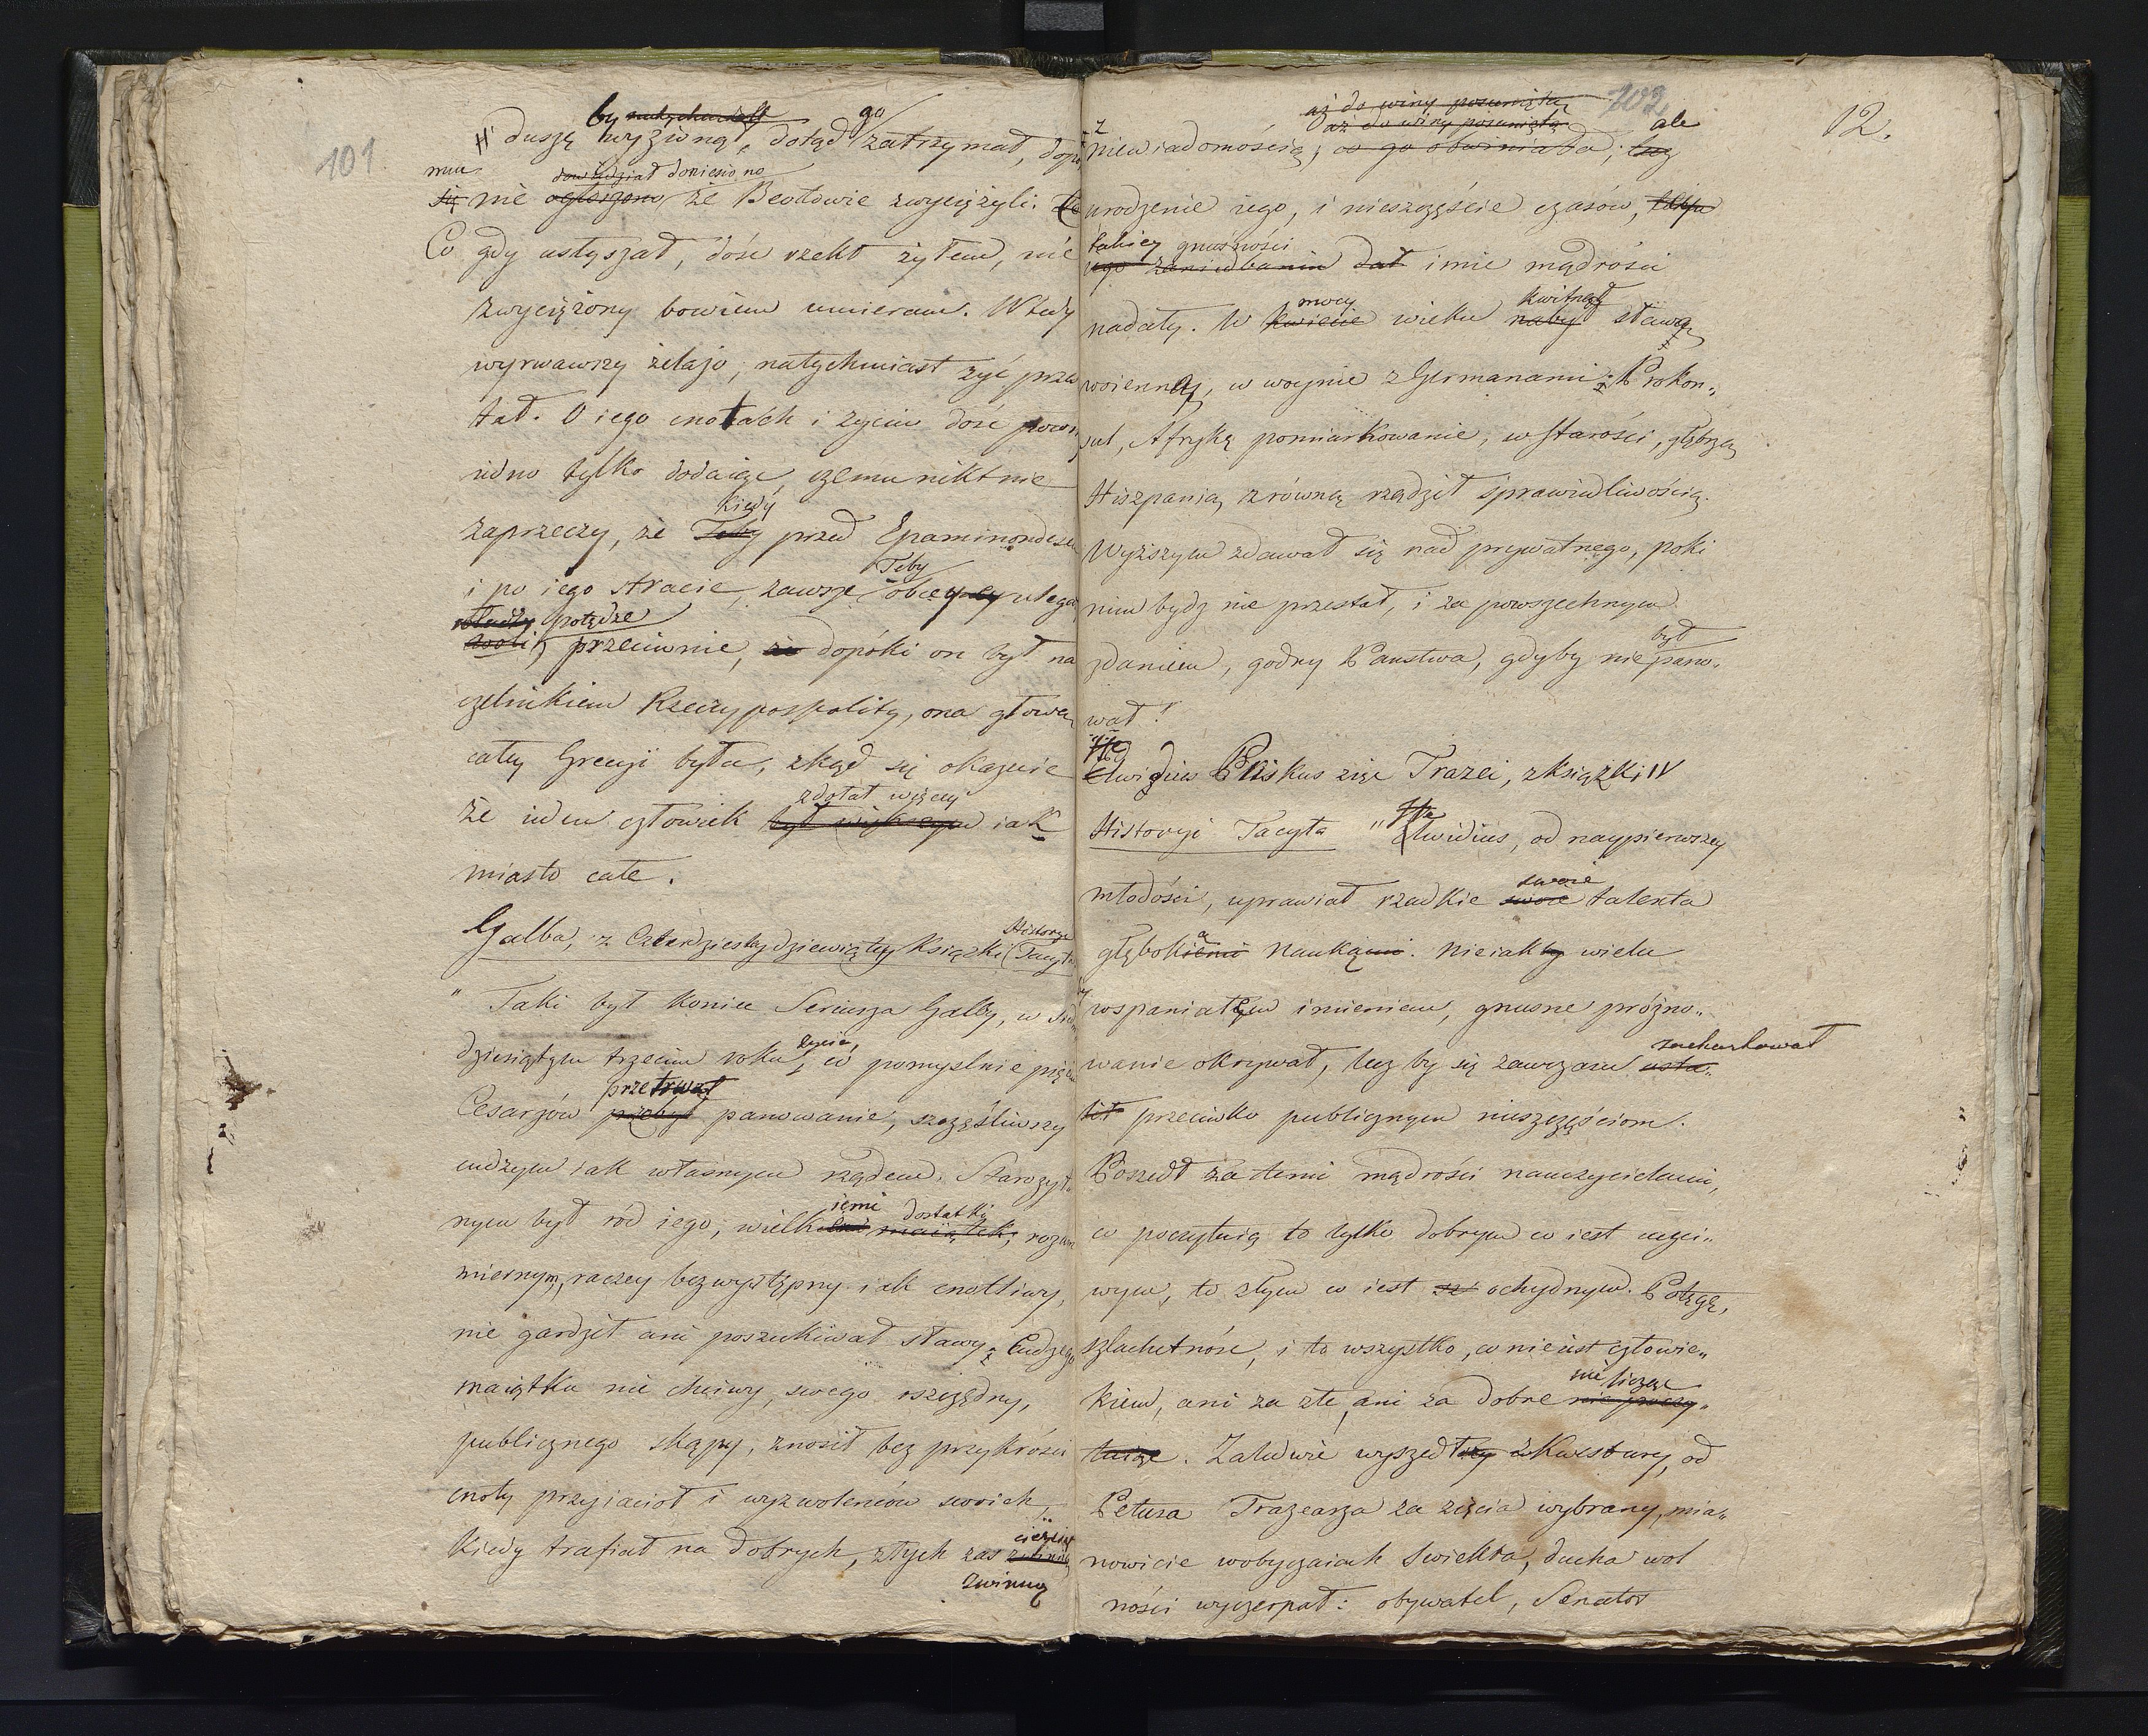 101
by natychmiast go
duszę wyzionął, dotąd zatrzymał, dopó
mu dowiedział doniesiono
się nie ogłoszono że Beotowie zwyciężyli.
Co gdy usłyszał, dość rzekł żyłem, nie
zwyciężony bowiem umieram. Wtedy
wyrwawszy żelazo, natychmiast żyć przes
tał. O iego cnotach i życiu dość powiem
iedno tylko dodaiąc, czemu nikt nie
kiedy
zaprzeczy, że Teby przed Epaminondasem
Teby
i po iego stracie, zawsze obcey uległ
władzy potędze
woli, przeciwnie, że dopóki on był na
czelnikiem Rzeczypospolity, ona głową
cały Grecyi była, zkąd się okazuie
zdołał więcey
że ieden człowiek był większym iak
miasto całe.
Historyi
Galba, z Czterdziestey dziewiątey Książki Tacyta
" Taki był koniec Serwiusza Galby, w siedm
życia,
dziesiątym trzecim roku, co pomyślnie pięciu
przetrwał
Cesarzów przebył panowanie, szczęśliwszy
cudzym iak własnym rządem. Starożyt
iemi dostatki
nym był ród iego, wielkie maiątek, rozum
miernym, raczey bezwystępny iak cnotliwy,
nie gardził ani poszukiwał sławy, Cudzego
maiątku nie chciwy, swego oszczędny,
publicznego skąpy, znosił bez przykrości
cnoty przyiaciół i wyzwoleńców swoich,
cierpiał
kiedy trafiał na dobrych, złych zaś
zwinną
103
12.
aż do winy posuniętą
aż do winy posuniętą ale
z niewiadomością; co go otwierało; lecz
urodzenie iego, i nieszczęście czasów,
takiey gnuśności
iego zaniedbaniu dał imie mądrości
mocy kwitnął
nadały. W kwiecie wieku nabył sławą
woienną, w woynie z Germanami: Prokon„
sul, Afryką pomiarkowanie, w starości, głębszą
Hiszpanią z równą rządził sprawiedliwością.
Wyższym zdawał się nad prywatnego, poki
nim bydz nie przestał, i za powszechnym
był
zdaniem, godny Państwa, gdyby nie pano„
wał!
He
Elwidius Priskus zięć Trazei, z książki IV
He
Historyi Tacyta " Elwidius, od naypierwszey
swoie
młodości, uprawiał rzadkie swoie talenta
głęboką Nauką. nieiak by wielu
wspaniałem imieniem, gnusne próżno„
zachartował
wanie okrywał, lecz by się zawczasu usta„
lił przeciwko publicznym nieszczęściom.
Poszedł za temi mądrości nauczycielami,
co poczytuią to tylko dobrym co iest uczci„
wym, to złym co iest ochydnym. Potęgę,
szlachetność, i to wszystko, co nie iest człowie„
nie licząc
kiem, ani za złe, ani za dobre nie poczy„
tuiąc. Zaledwie wyszedłszy z Kwestury, od
Petusa Trazeasza za zięcia wybrany, mia„
nowicie w obyczaiach świekra, ducha wol
ności wyczerpał: obywatel, Senator